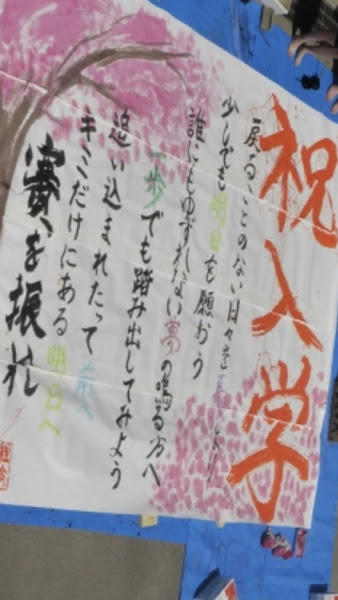 祝入学
戻ることのない日々を より
少しでも明日を願おう
誰にもゆずれない夢の鳴る方へ
一歩でも踏み出してみよう
追い込まれたって前へ
キミだけにある明日へ
賽を振れ